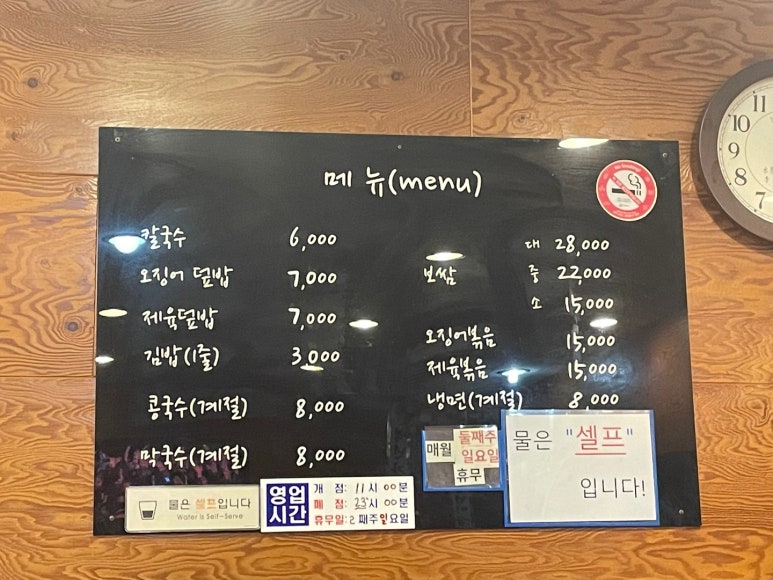 메 뉴(menu)
칼국수 6,000
오징어 덮밥 7,000
제육덮밥 7,000
김밥(1줄) 3,000
콩국수(계절) 8,000
막국수(계절) 8,000
보쌈
대 28,000
중 22,000
소 15,000
오징어볶음 15,000
제육볶음 15,000
냉면(계절) 8,000
매월 둘째주
일요일
휴무
물은 "셀프"
입니다!
물은 셀프입니다
Water is Self-Serve
영업
시간
개 점: 11시 00분
폐 점: 23시 00분
휴무일: 2째주일요일
11
10
9
8
7